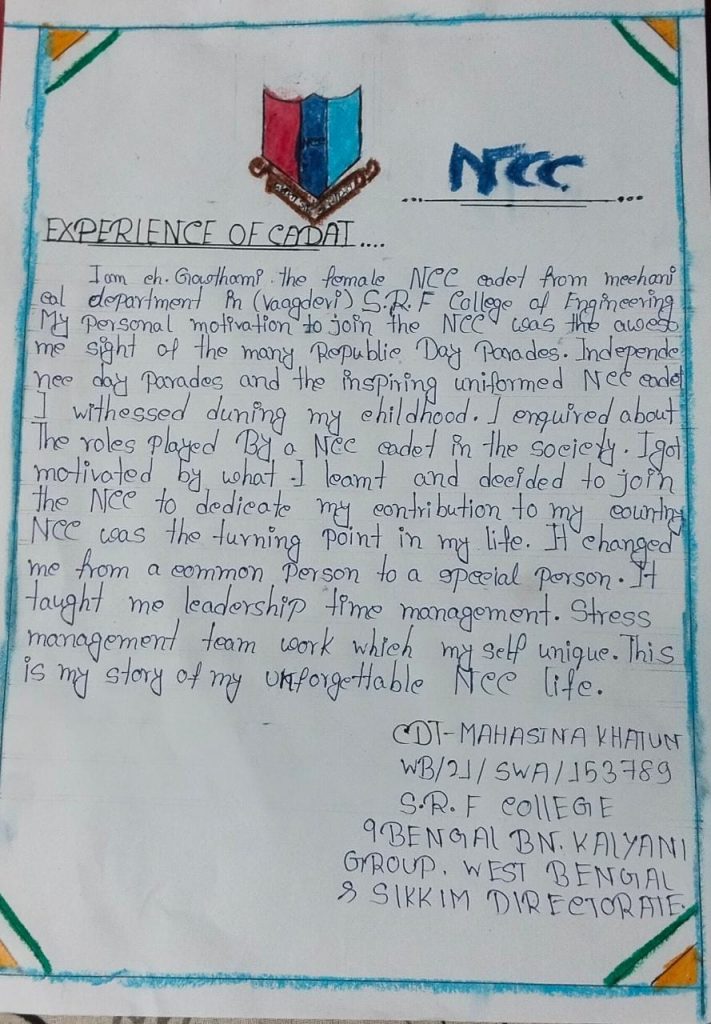 NCC
EXPERIENCE OF CADAT....
I am ch. Gowthami. the female NCC cadet from mechani
cal department in (vaagdevi) S.R.F College of Engineering
My personal motivation to join the NCC was the aweso
me sight of the many Republic Day Parades. Independe
nce day Parades and the inspiring uniformed NCC cadet
I withessed duning my childhood. I enquired about
The roles played By a NCC cadet in the society. I got
motivated by what I learnt and decided to join
the NCC to dedicate my contribution to my country
NCC was the turning point in my life. It changed
me from a common Person to a special person. It
taught me leadership time management. Stress
management team work which my self unique. This
is my story of my unforgettable NCC life.
CDT-MAHASINA KHATUN
WB/21/SWA/153789
S.R.F COLLEGE
9 BENGAL BN. KALYANI
GROUP. WEST BENGAL
& SIKKIM DIRECTORATE.